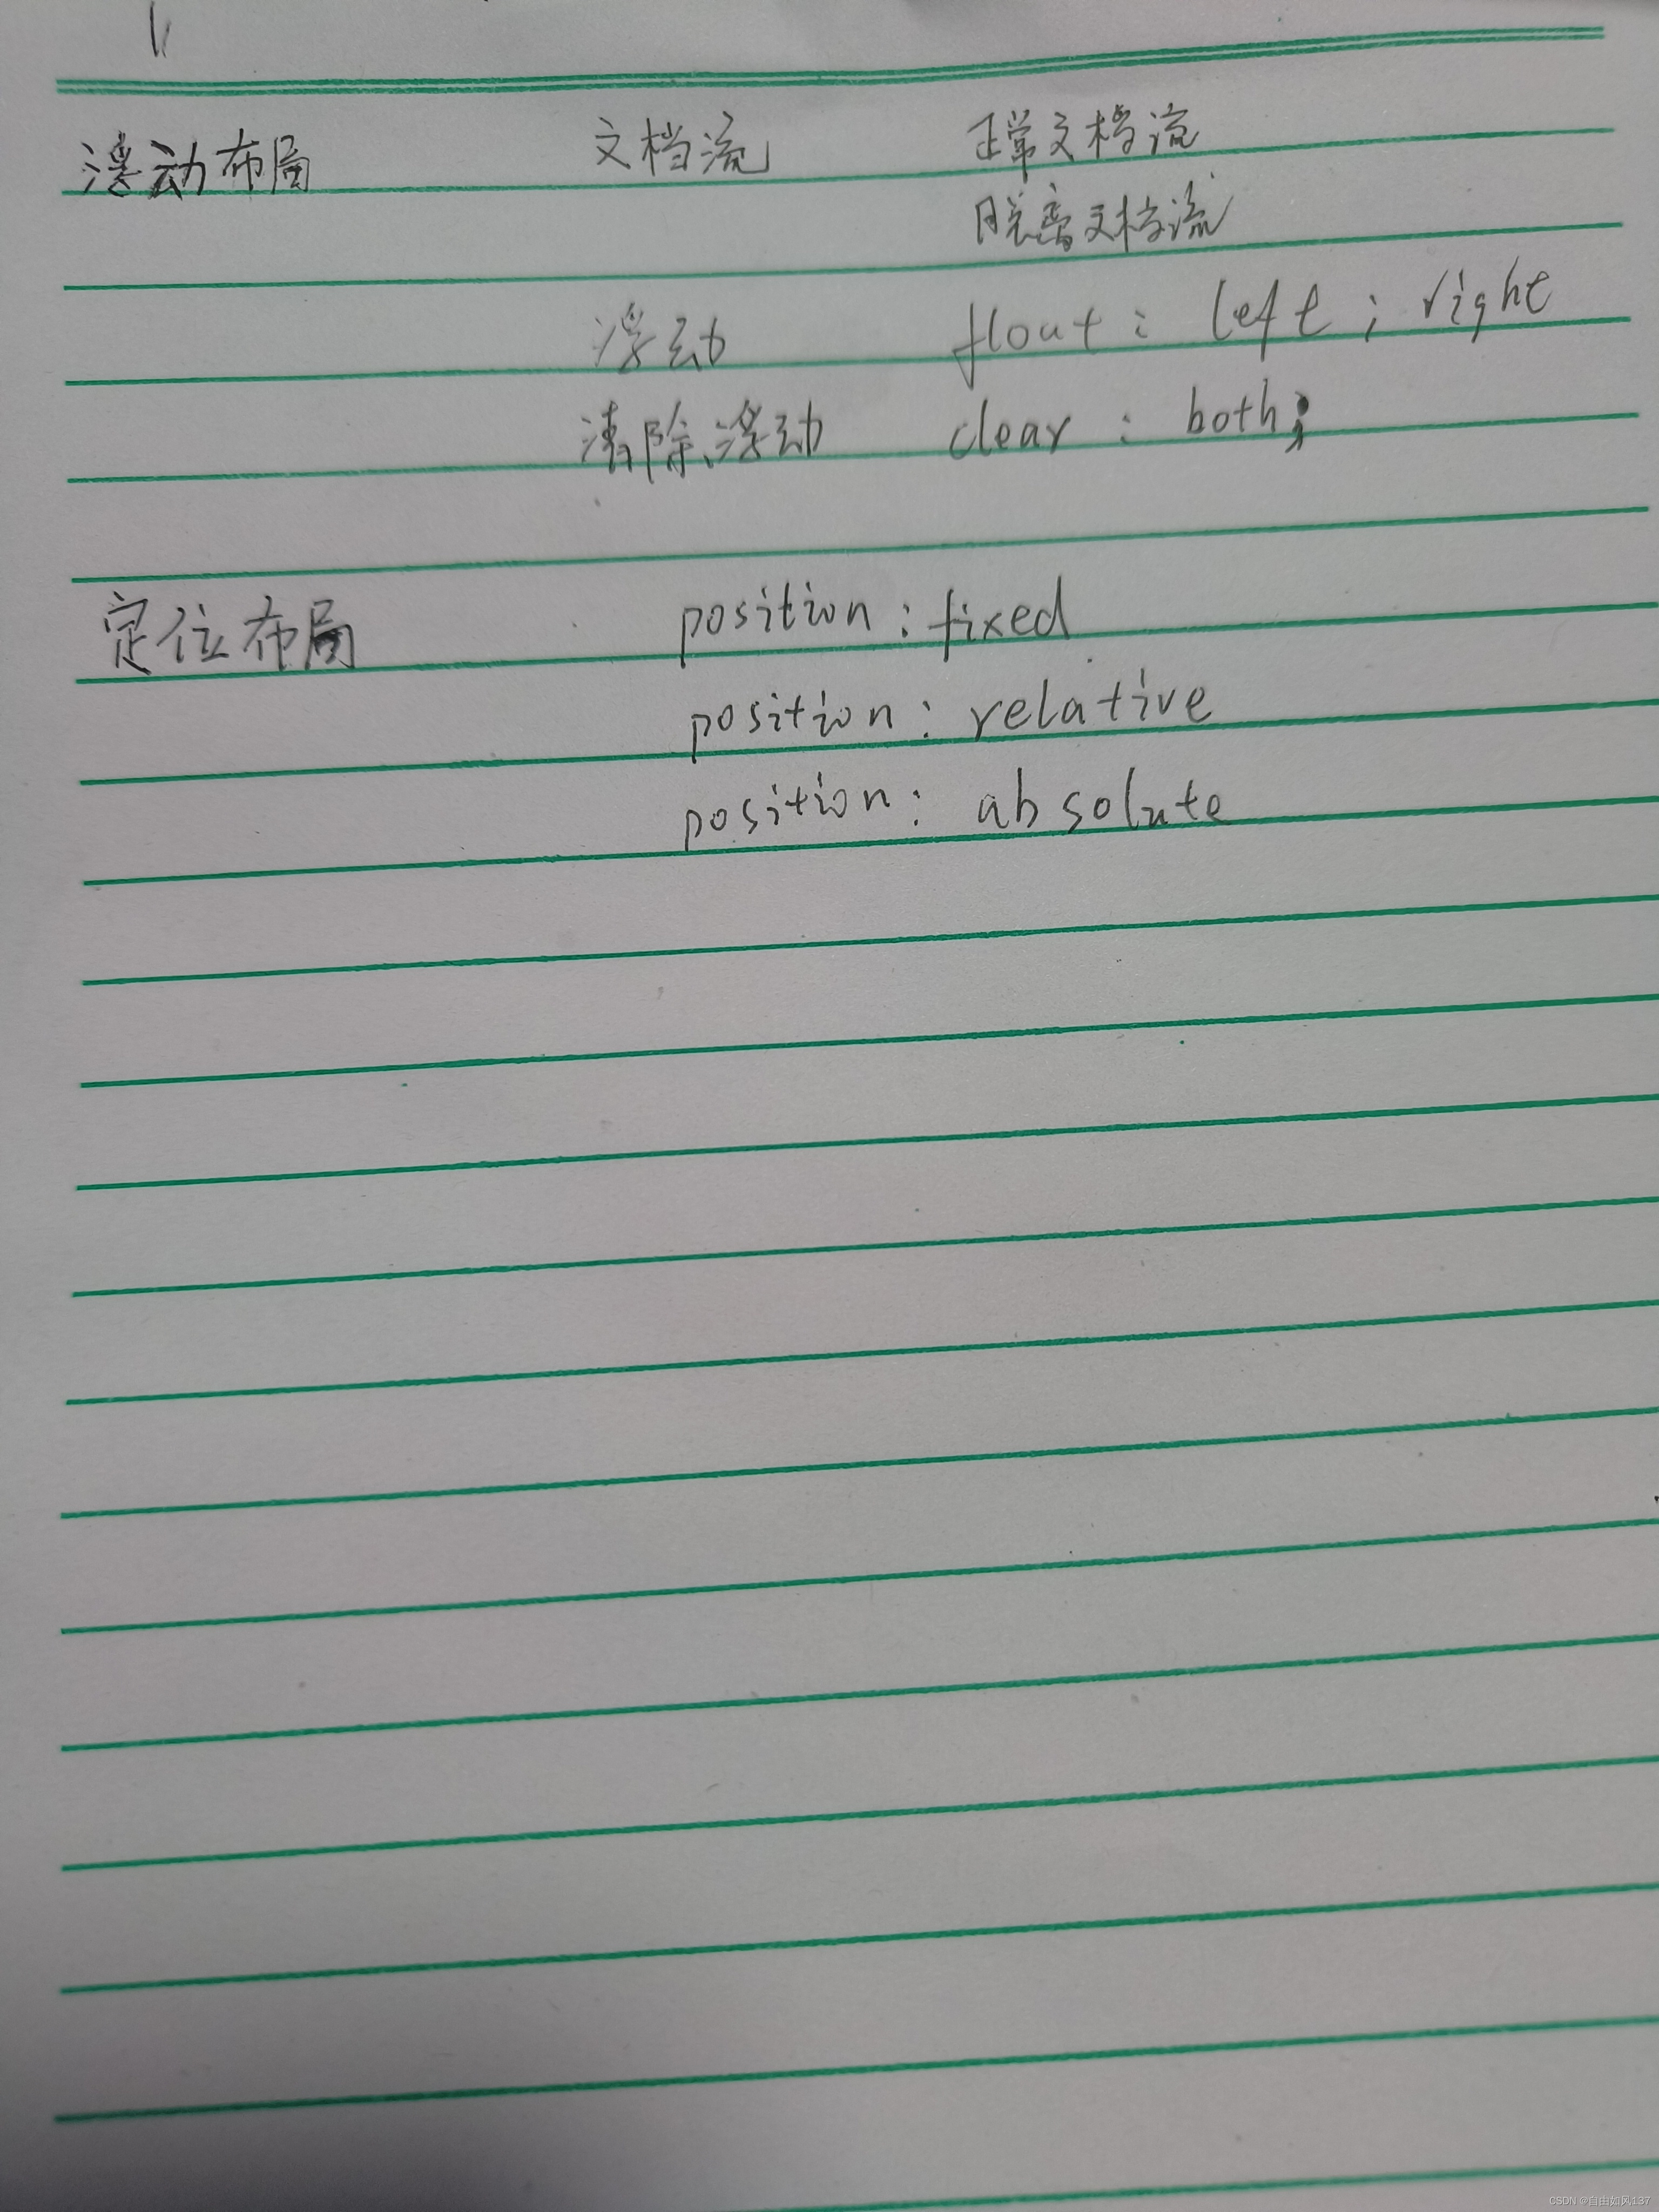 浮动布局 文档流 正常文档流
脱离文档流
浮动 float : left ; right
清除浮动 clear : both;
定位布局 position : fixed
position : relative
position : absolute
CSDN @自由如风137